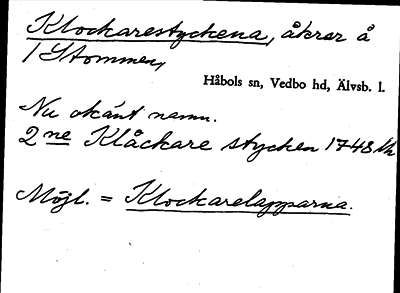 Klockarestyckena, åkrar å
1 Stommen,
Håbols sn, Vedbo hd, Älvsb. l.
Nu okänt namn.
2 ne Klåckare stycken 1748
Möjl. = Klockarelapparna.